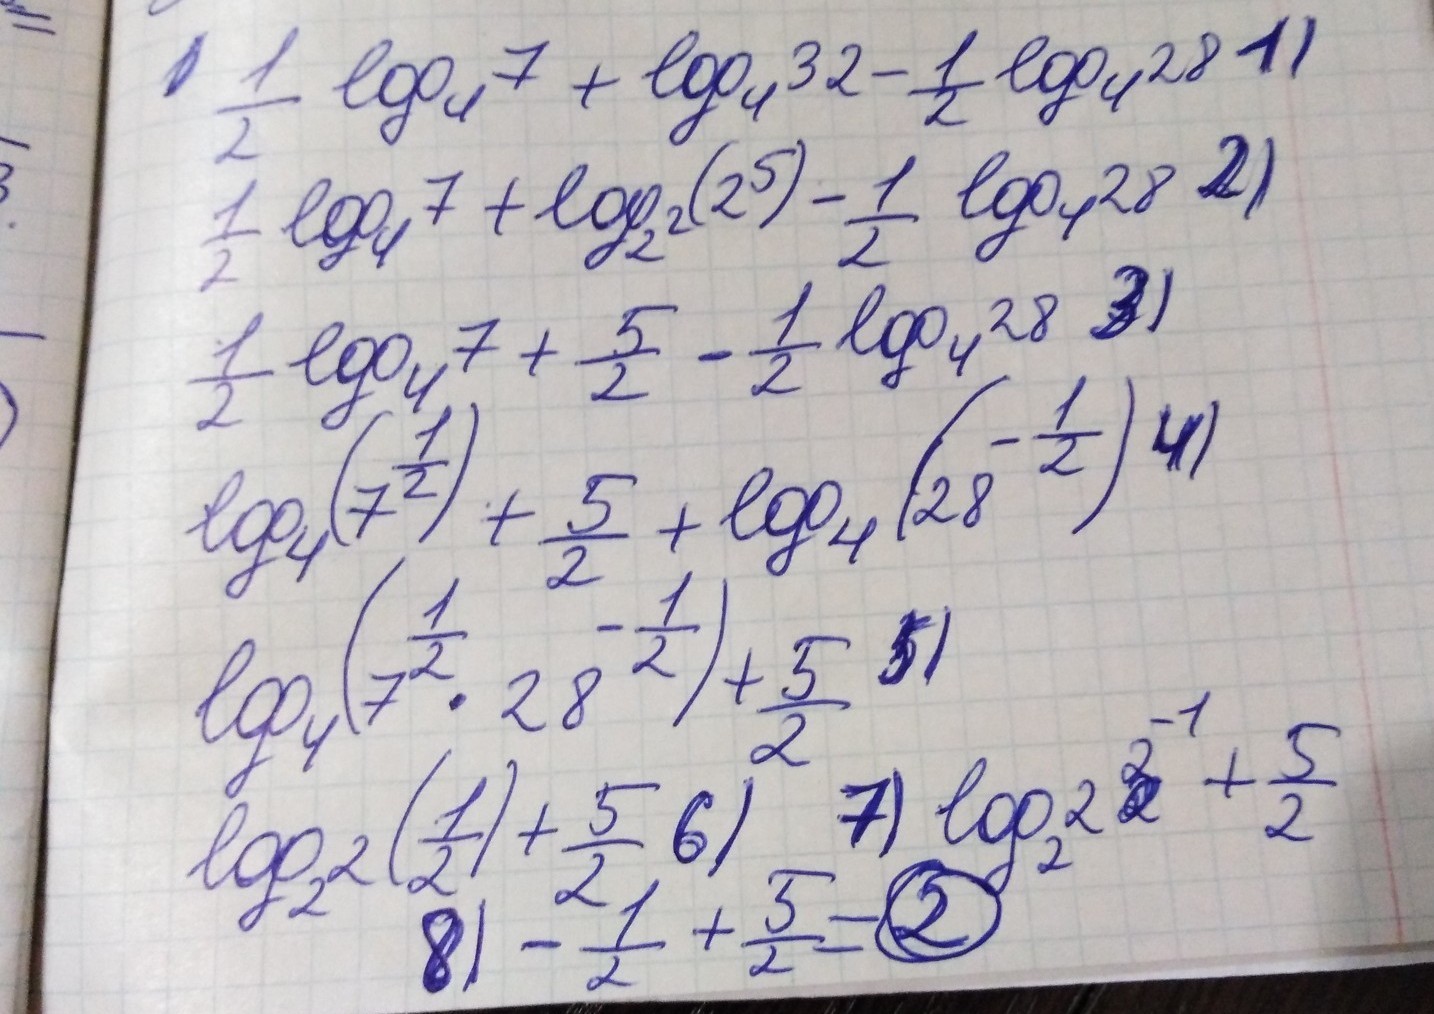 1/2 log₄7 + log₄32 - 1/2 log₄28 1)
1/2 log₄7 + log₂²(2⁵) - 1/2 log₄28 2)
1/2 log₄7 + 5/2 - 1/2 log₄28 3)
log₄(7^1/2) + 5/2 + log₄(28^-1/2) 4)
log₄(7^1/2 · 28^-1/2) + 5/2 5)
log₂2(1/2) + 5/2 6) 7) log₂2 2^-1 + 5/2
8) -1/2 + 5/2 = 2